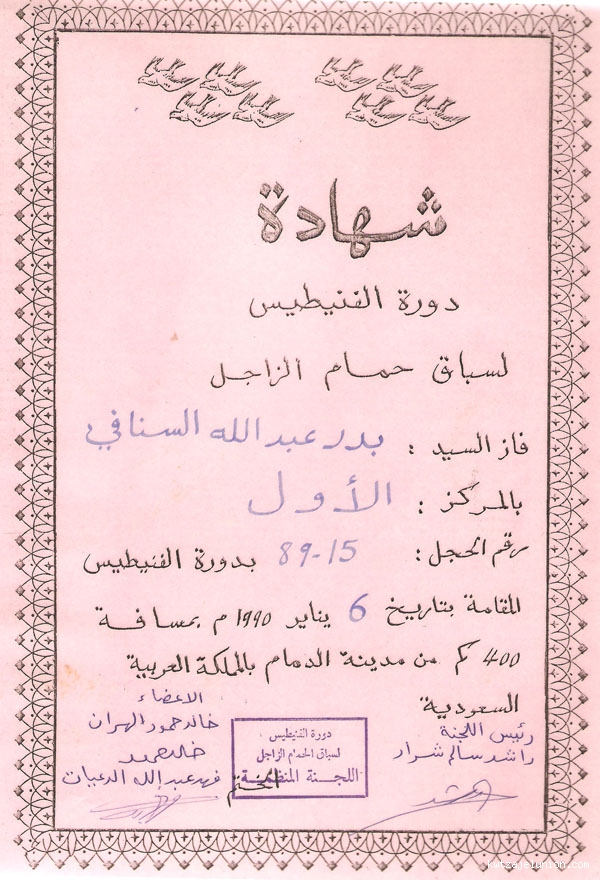 شهادة
دورة الفنيطيس
لسباق حمام الزاجل
فاز السيد : بدر عبد الله السنافي
بالمركز : الأول
رقم الحجل : 15-89 بدورة الفنيطيس
المقامة بتاريخ 6 يناير 1990 م بمسافة
400 كم من مدينة الدمام بالمملكة العربية
السعودية
رئيس اللجنة
راشد سالم شرار
دورة الفنيطيس
لسباق الحمام الزاجل
اللجنة المنظمة
الختم
الاعضاء
خالد حمود الهران
فهد عبدالله الدعيات
kwtzajelunion.com